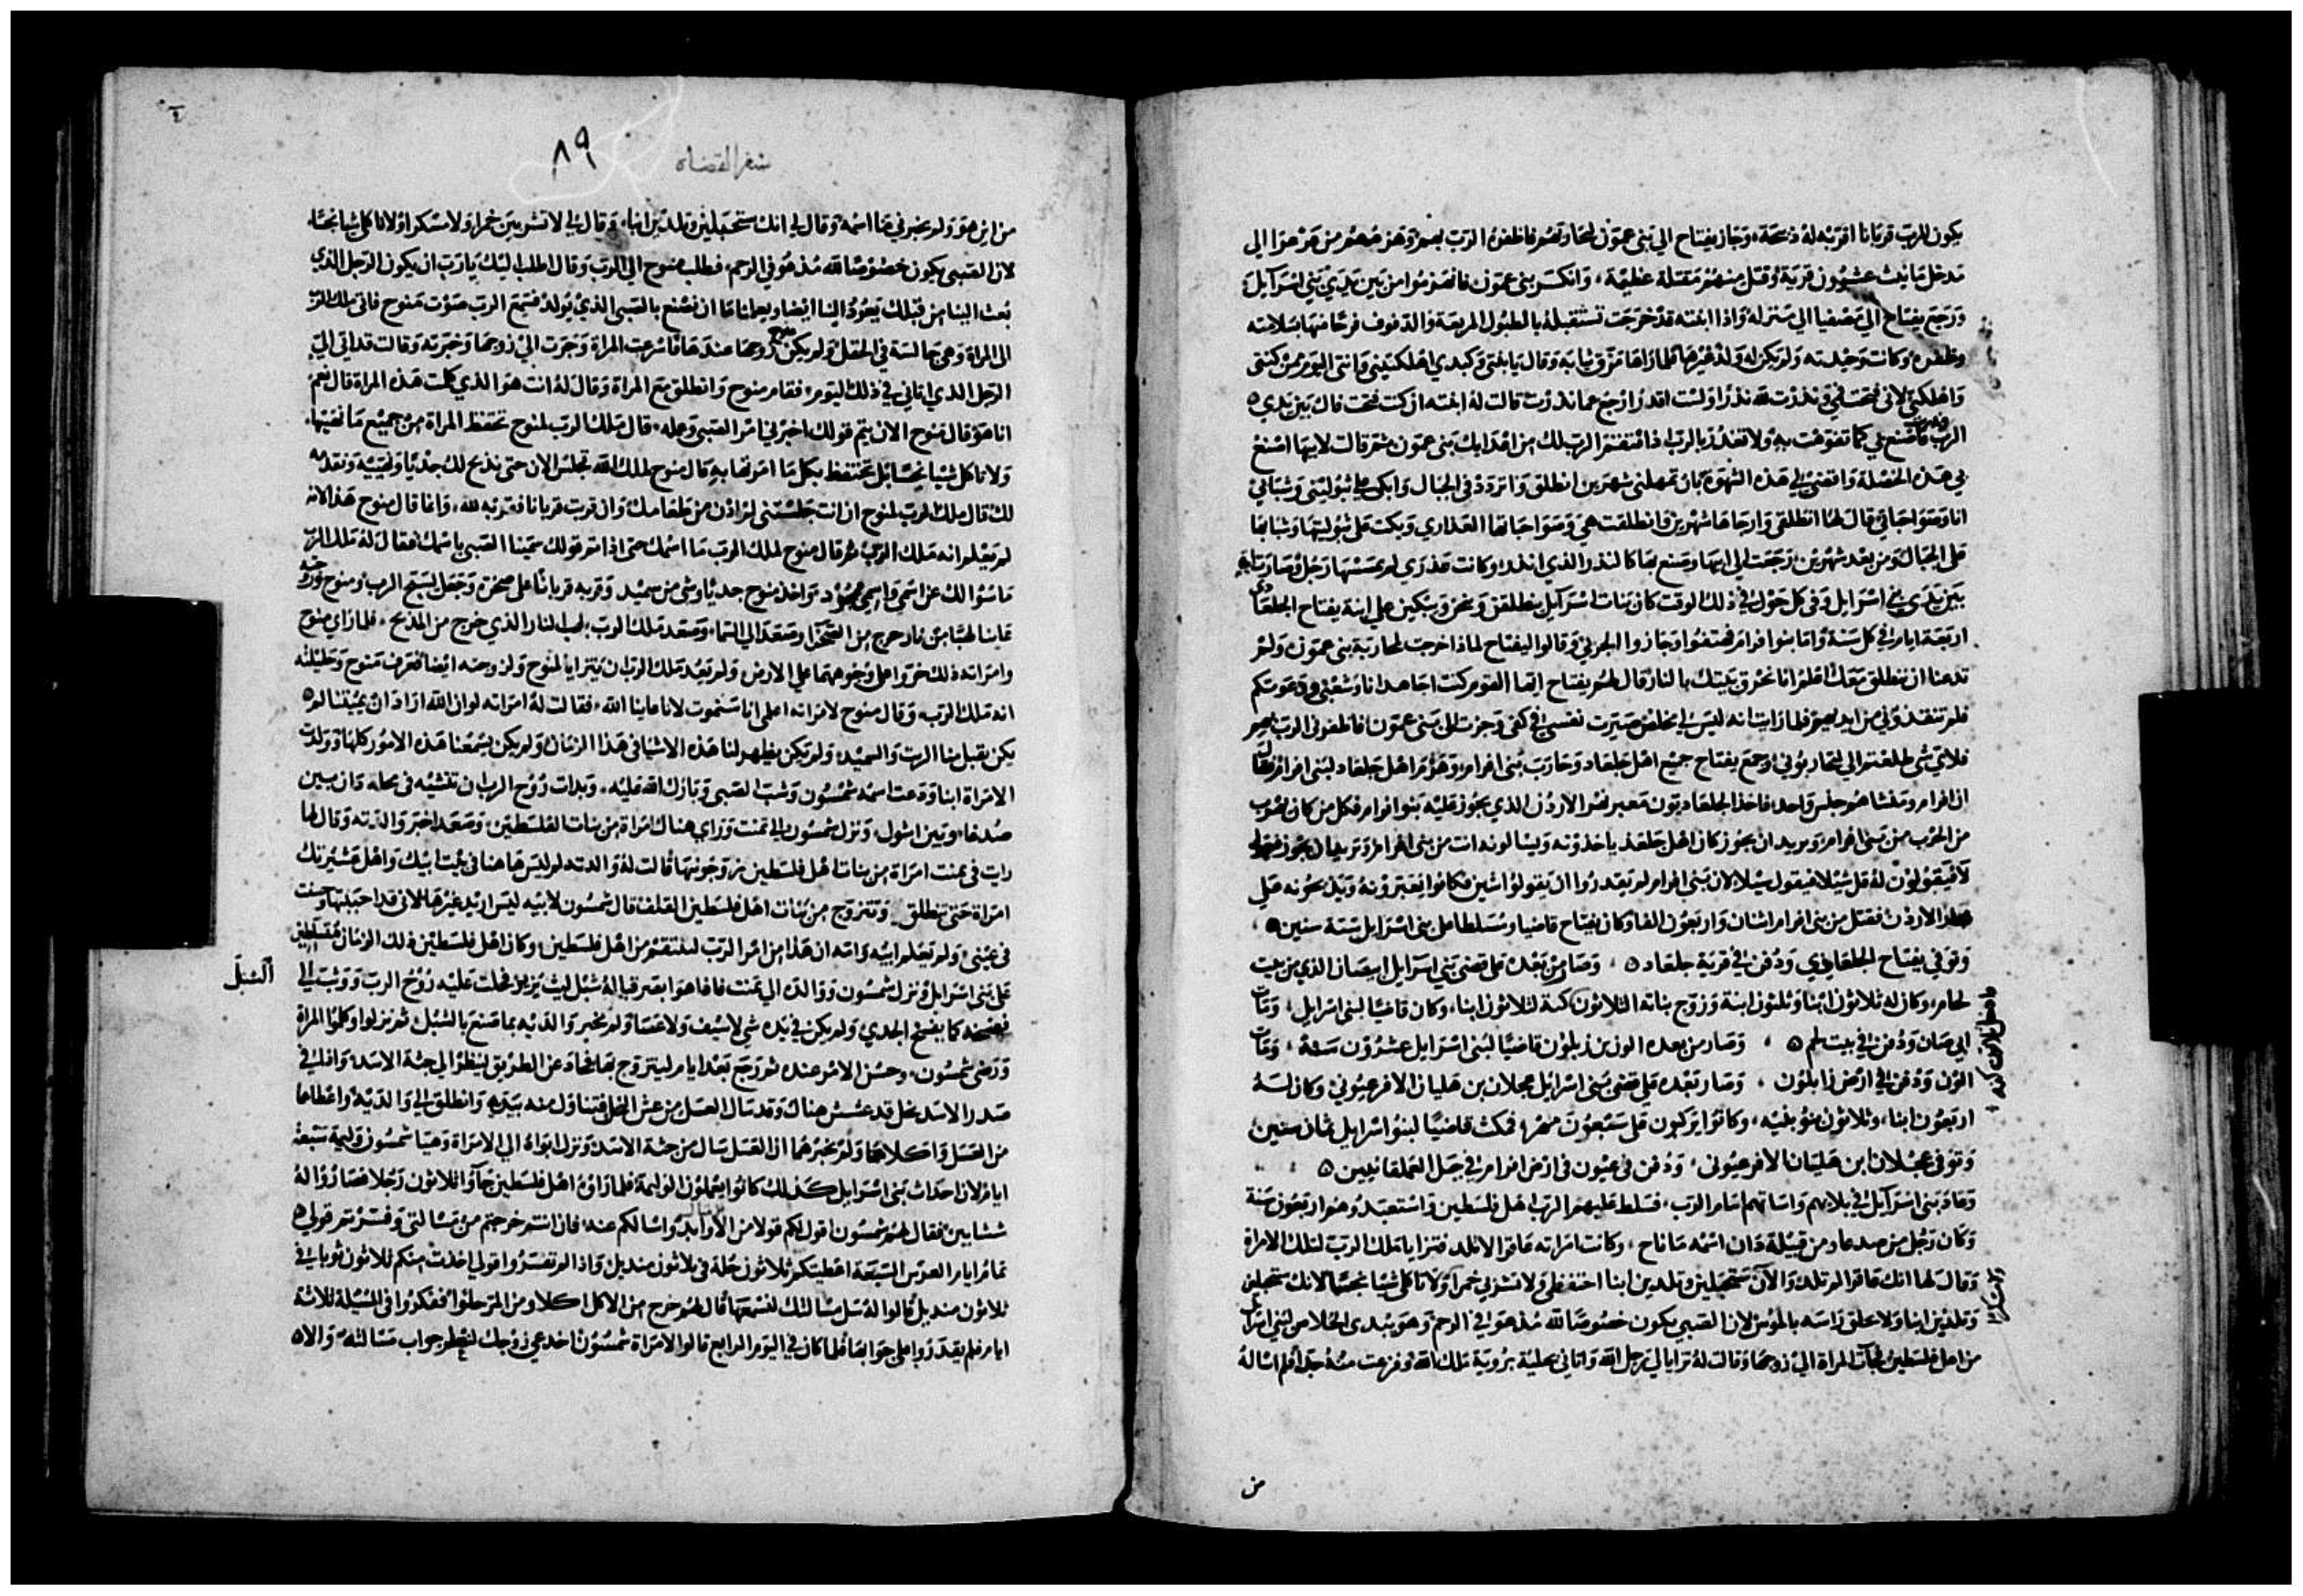 يكون للرب قربانا اقربه له ذبيحة وجاز يفتاح الي بني عمون لمحاربتهم فاظفره الرب بهم وهزمهم من عروعر الي
مدخل مانيث عشرون قرية وقتل منهم مقتلة عظيمة وانكسر بني عمون فانهزموا من بين يدي بني اسرائيل
ورجع يفتاح الي مصفيا الي منزله واذا ابنته قد خرجت تستقبله بالطبول المربعة والدفوف فرحا منها بسلامته
وظفره وكانت وحيدته ولم يكن له ولد غيرها فلما راها مزق ثيابه وقال يا ابنتي وكبدي اهلكتيني وانتي اليوم
واهلكتي لاني فتحت فمي ونذرت لله نذرا ولست اقدر ارجع عما نذرت قالت له ابنته ان كنت فتحت فاك بين يدي
الرب فاصنع بي كما تفوهت به ولا تغدر بالرب اذ انتقم الرب لك من اعدايك بني عمون ثم قالت لابيها اصنع
بي هذه الخصلة واقضي لي هذه الشهوة بان تمهلني شهرين انطلق واتردد في الجبال وابكي علي بتوليتي وشبابي
انا وصواحباتي قال لها انطلقي وارجاها شهرين فانطلقت هي وصواحباتها العذاري وبكت علي بتوليتها وشبابها
علي الجبال ومن بعد شهرين رجعت الي ابيها وصنع بها كالنذر الذي انذره وكانت عذري لم يمسسها رجل وصارت
بين يدي بني اسرائيل وفي كل حول في ذلك الوقت كان بنات اسرائيل ينطلقن وينحن ويبكين علي ابنة يفتاح الجلعادي
اربعة ايام في كل سنة واما بنوا افرام فهتفوا وجازوا الجربي وقالوا ليفتاح لماذا خرجت لمحاربة بني عمون ولم
تدعنا ان ننطلق معك اعلم انا نحرق بيتك بالنار قال لهم يفتاح ايها القوم كنت اجاهد انا وشعبي ودعوتكم
فلم تنقذوني من ايديهم فلما رايت انه ليس لي مخلص صيرت نفسي في كفي وجزت الي بني عمون فاظفرني الرب بهم
فلاي شي طلعتم الي لتحاربوني وجمع يفتاح جميع اهل جلعاد وحارب بني افرام وهزم اهل جلعاد لبني افرام
من الحرب من بني افرام ويريد ان يجوز كان اهل جلعاد ياخذونه ويسالونه انت من بني افرام وتريد ان تجوز
لا فيقولون له قل شبلا فيقول سبلا لان بني افرام لم يقدروا ان يقولوا شين فكانوا يعبرونه ويذبحونه علي
الاردن فقتل من بني افرام اثنان واربعون الفا وكان يفتاح قاضيا ومسلطا علي بني اسرائيل ستة سنين
وتوفي يفتاح الجلعادي ودفن في قرية جلعاد وصار من بعده علي قضي بني اسرايل ابيصان الذي من بيت
لحام وكان له ثلاثون ابنا وثلثون ابنة وزوج بناته الثلاثون كنة لثلاثون ابنا وكان قاضيا لبني اسرايل ومات
ابيصان ودفن في بيت لحم وصار من بعده الون من زبلون قاضيا لبني اسرايل عشرون سنة ومات
الون ودفن في ارض زابلون وصار بعده علي قضي بني اسرايل عجلان بن هليان الافرعيوني وكان له
اربعون ابنا وثلاثون بنو بنيه وكانوا يركبون علي سبعون مهرا فمكث قاضيا لبنو اسرايل ثمان سنين
وتوفي عجلان ابن هليان الافرعيوني ودفن في عيون في ارض افرام في جبل العملقانيين
وعاد بني اسرائيل في بلايهم واساتهم امام الرب فسلط عليهم الرب اهل فلسطين واستعبدوهم اربعون سنة
وكان رجل من صدعا ومن قبيلة دان اسمه ماناح وكانت امراته عاقرا لا تلد فتزايا ملك الرب لتلك الامراة
وقال لها انك عاقرا لم تلد والان ستحبلين وتلدين ابنا احتفظي ولا تشربي خمرا ولا تاكلي شيا نجسا لانك ستحبلين
وتلدين ابنا ولا علي راسه بالموس لان الصبي يكون خصوصا لله مذ هو في الرحم وهو يبدي الخلاص لبني اسرايل
من اهل فلسطين فجات المراة الي زوجها وقالت له ترايا لي رجل الله واتاني بحلية بروية ملك الله وفزعت منه جدا فلم اساله
من
سفر القضاه
٨٩
من اين هو ولم يخبرني ما اسمه وقال لي انك ستحبلين وتلدين ابنا وقال لي لا تشربين خمرا ولا مسكرا ولا تاكلي شيا نجسا
لان الصبي يكون خصوصا لله مذ هو في الرحم فطلب منوح الي الرب وقال اطلب اليك يا رب ان يكون الرجل الذي
بعث الينا من قبلك يعود الينا ايضا ويعلمنا ما ان نصنع بالصبي الذي يولد فسمع الرب صوت منوح فاتي ملك الرب
الي المراة وهي جالسة في الحقل ولم يكن منوح زوجها عندها فاسرعت المراة وجرت الي زوجها وخبرته وقالت قد اتي الي
الرجل الذي اتاني في ذلك اليوم فقام منوح وانطلق مع المراة وقال له انت هو الذي كلمت هذه المراة قال نعم
انا هو قال منوح الان يتم قولك اخبرني امر الصبي وعمله قال ملك الرب لمنوح تحتفظ المراة من جميع ما نهيتها
ولا تاكل شيا نجسا بل تحتفظ بكل ما امرتها به قال منوح لملك الله تجلس الان حتي نذبح لك جديا ونهيه ونقدمه
لك قال ملك الرب لمنوح ان انت جلستني لم اذن من طعامك وان قربت قربانا فقربه لله وانما قال منوح هذا لانه
لم يعلم انه ملك الرب ثم قال منوح لملك الرب ما اسمك حتي اذا تم قولك سمينا الصبي باسمك فقال له ملك الرب
ما سوالك عن اسمي واسمي واخذ منوح جديا وشي من سميد وقربه قربانا علي صخرة وجعل يسبح الرب ومنوح وزوجته
عاينا لهبا من نار خرج من الصخرا وصعد الي السما وصعد ملك الرب بلهب النار الذي خرج من المذبح فلما راي منوح
وامراته ذلك خروا علي وجوههما علي الارض ولم يعد ملك الرب ان يترايا لمنوح ولزوجته ايضا فعرف منوح وحليلته
انه ملك الرب وقال منوح لامراته اعلمي انا سنموت لانا عاينا الله فقالت له امراته لو ان الله اراد ان يميتنا لم
يكن يقبل منا الرب والسميد ولم يكن يظهر لنا هذه الاشيا في هذا الزمان ولم يكن يسمعنا هذه الامور كلها وولدت
الامراة ابنا ودعت اسمه شمسون وشب الصبي وبارك الله عليه وبدات روح الرب ان تنشيه في محله دان بين
صدعا وبين اشول ونزل شمسون الي تمنت وراي هناك امراة من بنات الفلسطين وصعد اخبر والدته وقال لها
رايت في تمنت امراة من بنات اهل فلسطين زوجونيها قالت له والدته او ليس هاهنا في بيت ابيك واهل عشيرتك
امراة حتي تنطلق وتتزوج من بنات اهل فلسطين القلف قال شمسون لابيه ليس اريد غيرها لاني قد احببتها وحسنت
في عيني ولم يعلم ابيه وامه ان هذا من امر الرب لينتقم من اهل فلسطين وكان اهل فلسطين ذلك الزمان مسلطين
علي بني اسرايل ونزل شمسون ووالده الي تمنت فاذا هو ابصر قباله شبل ليث يزير فحلت عليه روح الرب ووثب الي
السبل
ففسخه كما يفسخ الجدي ولم يكن في يده شي لا سيف ولا عصا ولم يخبر والديه بما صنع بالشبل ثم نزلوا وكلموا المراة
ورضي شمسون وحسن الامر عنده ثم رجع بعد ايام ليتزوج بها فحاد عن الطريق لينظر الي جثة الاسد واذا في
صدر الاسد نحل قد عشش هناك وقد سال العسل من عش النحل فتناول منه بيديه وانطلق الي والديه واعطاهما
من العسل واكلا هما ولم يخبرهما ان العسل سال من جثة الاسد ونزل ابواه الي الامراة وهيا شمسون وليمة سبعة
ايام لان احداث بني اسرايل كذلك كانوا يعملون الوليمة فلما راوه اهل فلسطين جاوا ثلاثون رجلا فصاروا له
ششابين فقال لهم شمسون اقول لكم قولا من الاوابد واسالكم عنه فان انتم خرجتم من مسالتي وفسرتم قولي
تمام ايام العرس السبعة اعطيتكم ثلاثون حلة في ثلاثون منديل واذا لم تفسروا قولي اخذت منكم ثلاثون ثوبا في
ثلاثون منديل قالوا له سل مسالتك لنسمعها قال لهم خرج من الاكل اكلا ومن المر حلوا ففكروا في المسيلة ثلاثة
ايام فلم يقدروا علي جوابها فلما كان في اليوم الرابع قالوا لامراة شمسون اخدعي زوجك لننظر جواب مسالته والا